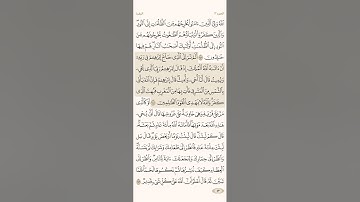 ٱللَّهُ وَلِيُّ ٱلَّذِينَ ءَامَنُوا۟ يُخْرِجُهُم مِّنَ ٱلظُّلُمَٰتِ إِلَى ٱلنُّورِ
وَٱلَّذِينَ كَفَرُوٓا۟ أَوْلِيَآؤُهُمُ ٱلطَّٰغُوتُ يُخْرِجُونَهُم مِّنَ
ٱلنُّورِ إِلَى ٱلظُّلُمَٰتِ أُو۟لَٰٓئِكَ أَصْحَٰبُ ٱلنَّارِ هُمْ فِيهَا
خَٰلِدُونَ أَلَمْ تَرَ إِلَى ٱلَّذِى حَآجَّ إِبْرَٰهِۦمَ فِى رَبِّهِۦٓ
أَنْ ءَاتَىٰهُ ٱللَّهُ ٱلْمُلْكَ إِذْ قَالَ إِبْرَٰهِۦمُ رَبِّىَ ٱلَّذِى يُحْىِۦ
وَيُمِيتُ قَالَ أَنَا۠ أُحْىِۦ وَأُمِيتُ قَالَ إِبْرَٰهِۦمُ فَإِنَّ ٱللَّهَ يَأْتِى
بِٱلشَّمْسِ مِنَ ٱلْمَشْرِقِ فَأْتِ بِهَا مِنَ ٱلْمَغْرِبِ فَبُهِتَ ٱلَّذِى
كَفَرَ وَٱللَّهُ لَا يَهْدِى ٱلْقَوْمَ ٱلظَّٰلِمِينَ أَوْ كَٱلَّذِى
مَرَّ عَلَىٰ قَرْيَةٍ وَهِىَ خَاوِيَةٌ عَلَىٰ عُرُوشِهَا قَالَ أَنَّىٰ يُحْىِۦ
هَٰذِهِ ٱللَّهُ بَعْدَ مَوْتِهَا فَأَمَاتَهُ ٱللَّهُ مِا۟ئَةَ عَامٍ ثُمَّ بَعَثَهُۥ
قَالَ كَمْ لَبِثْتَ قَالَ لَبِثْتُ يَوْمًا أَوْ بَعْضَ يَوْمٍ قَالَ بَل
لَّبِثْتَ مِا۟ئَةَ عَامٍ فَٱنظُرْ إِلَىٰ طَعَامِكَ وَشَرَابِكَ لَمْ يَتَسَنَّهْ
وَٱنظُرْ إِلَىٰ حِمَارِكَ وَلِنَجْعَلَكَ ءَايَةً لِّلنَّاسِ وَٱنظُرْ إِلَى
ٱلْعِظَامِ كَيْفَ نُنشِزُهَا ثُمَّ نَكْسُوهَا لَحْمًا فَلَمَّا
تَبَيَّنَ لَهُۥ قَالَ أَعْلَمُ أَنَّ ٱللَّهَ عَلَىٰ كُلِّ شَىْءٍ قَدِيرٌ